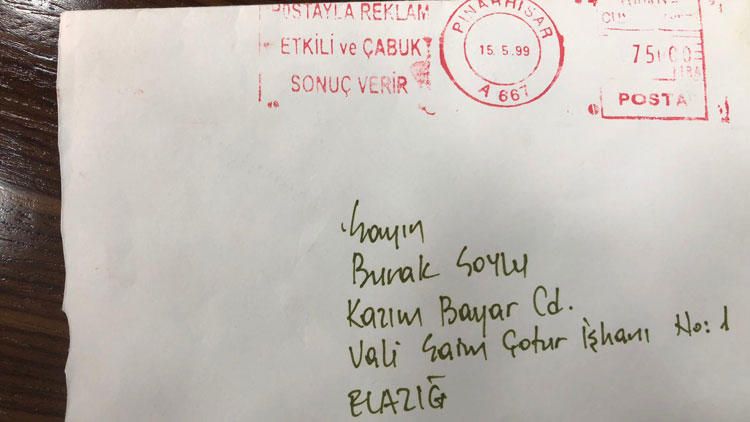 POSTAYLA REKLAM
ETKİLİ ve ÇABUK
SONUÇ VERİR
PINARHİSAR
15.5.99
A 667
POSTA
Sayın
Burak Soylu
Kazım Bayar Cd.
Vali Saim Çotur İşhanı No: 1
ELAZIĞ